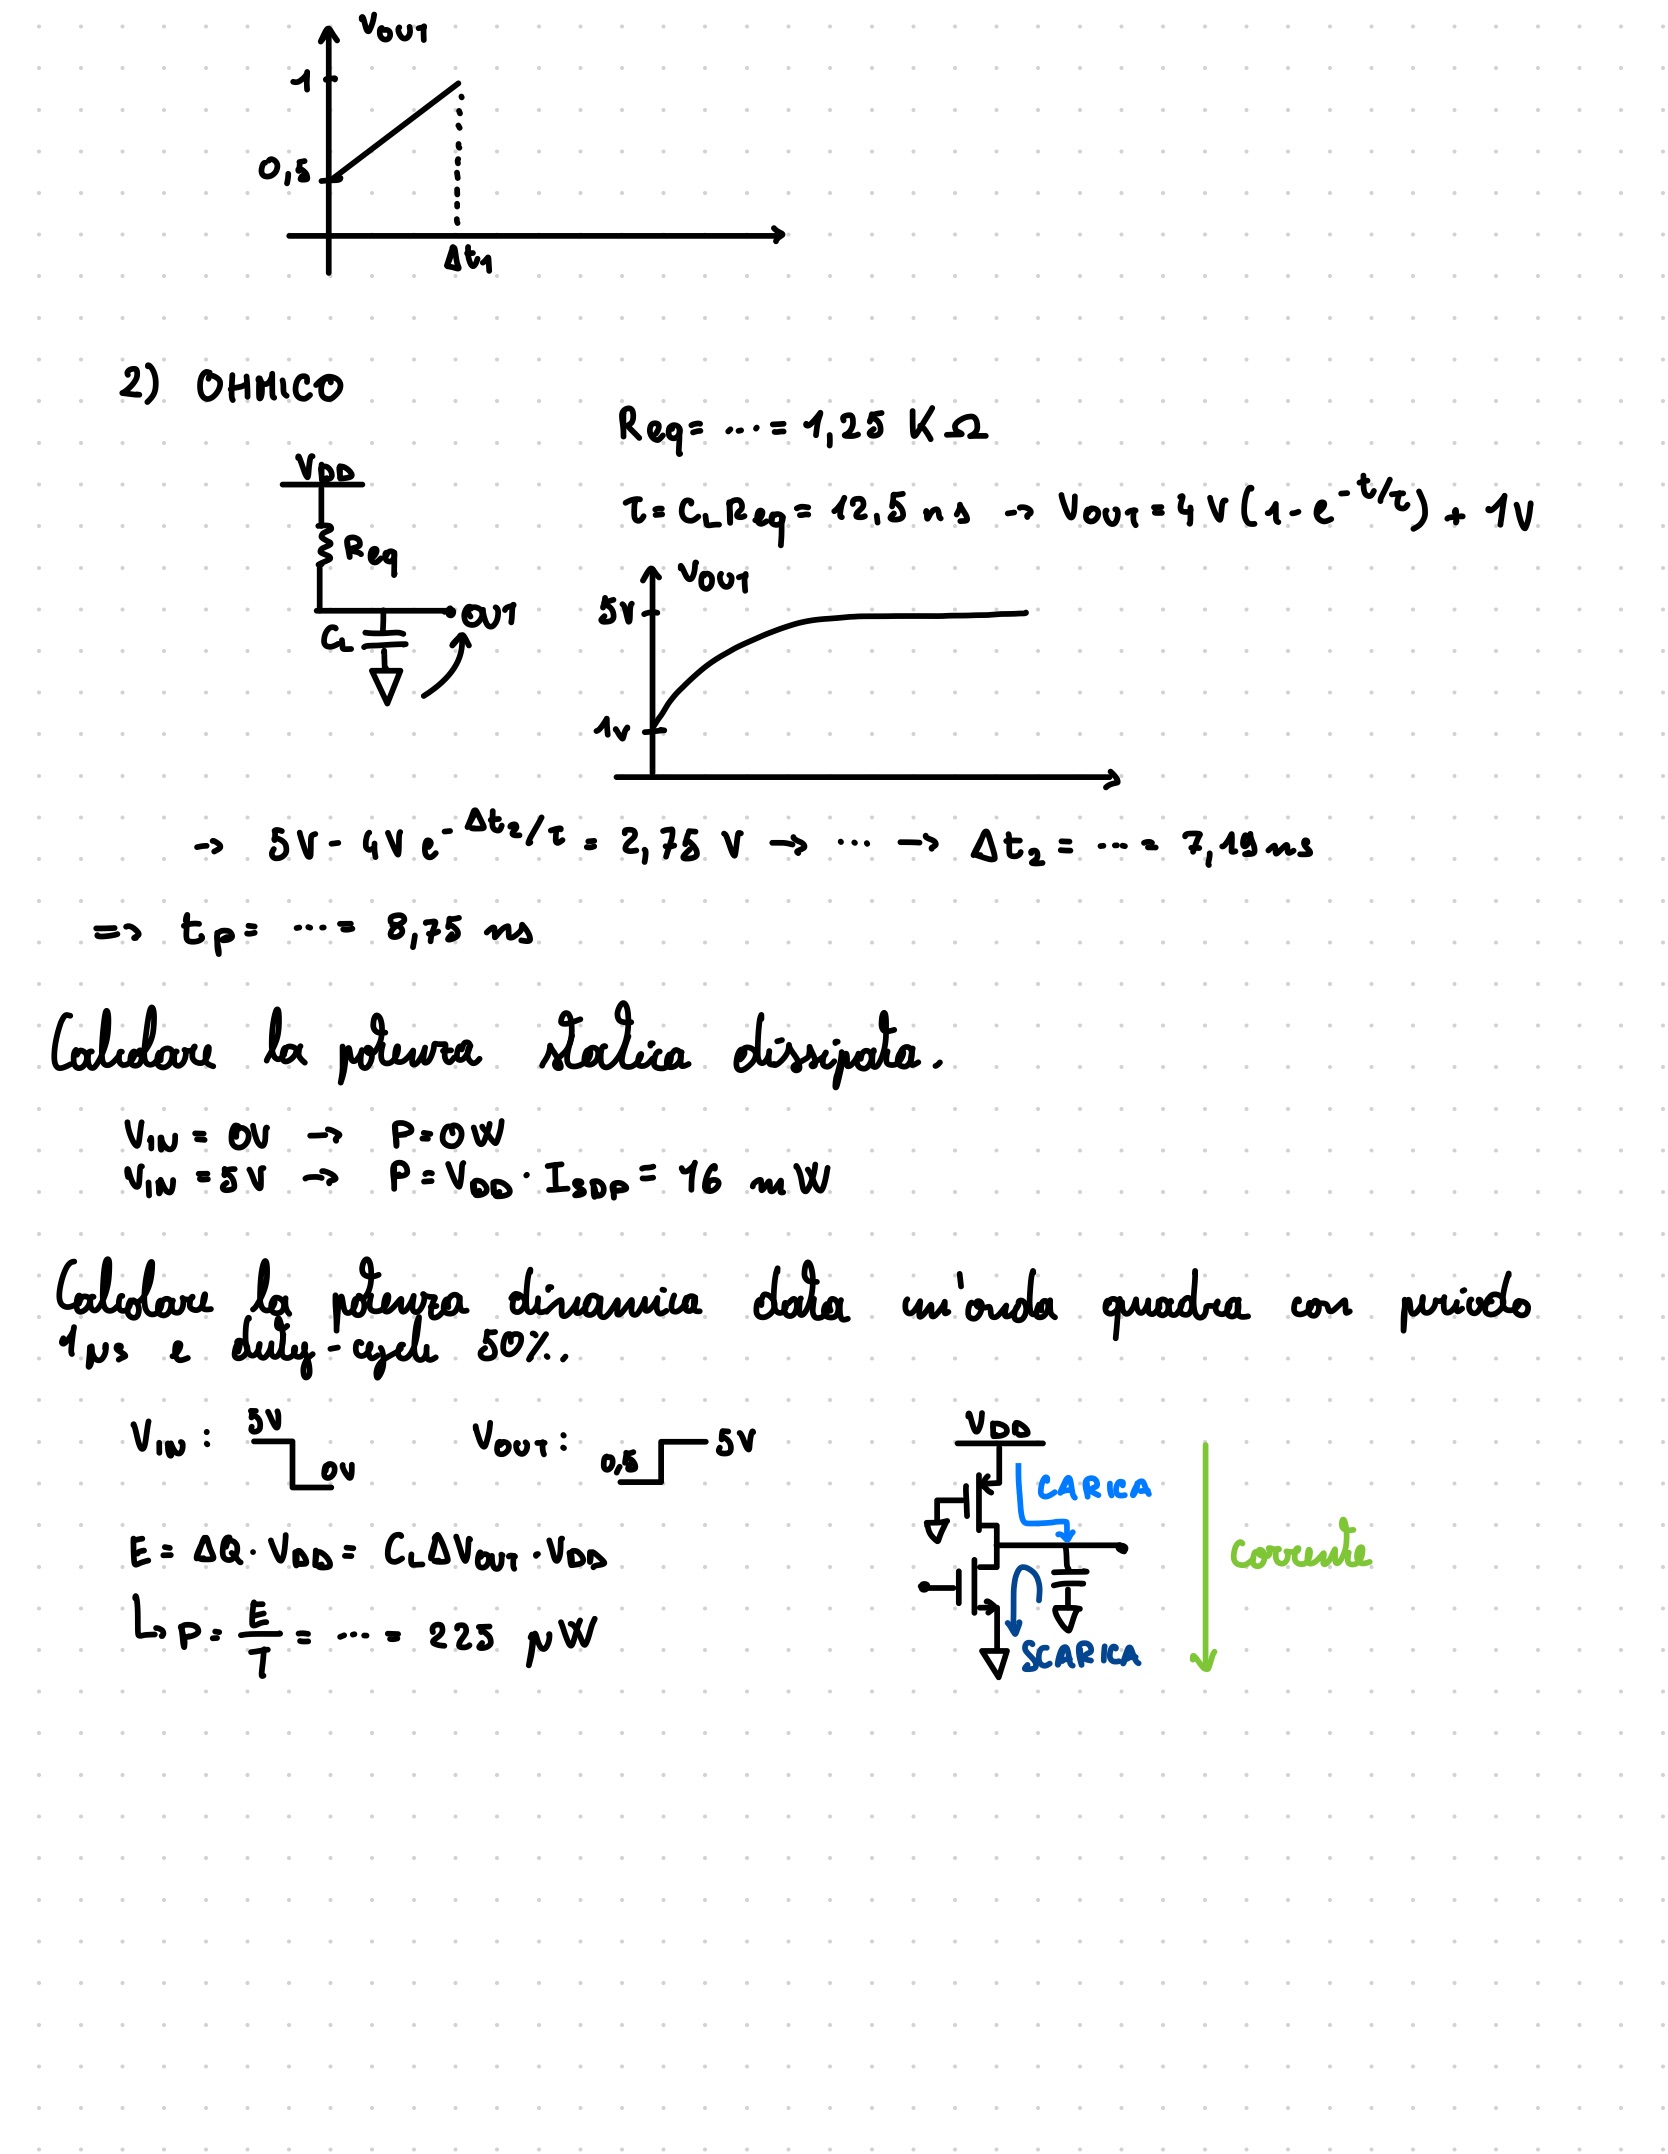 VOUT
1
0,5
Δt1
2) OHMICO
Req = ... = 1,25 KΩ
VDD
τ = CL Req = 12,5 ns → VOUT = 4 V (1 - e^-t/τ) + 1V
Req
VOUT
5V
OUT
CL
1V
→ 5V - 4V e^-Δt2/τ = 2,75 V → ... → Δt2 = ... = 7,19 ns
=> tp = ... = 8,75 ns
Calcolare la potenza statica dissipata.
VIN = 0V → P = 0 W
VIN = 5 V → P = VDD · ISDP = 16 mW
Calcolare la potenza dinamica data un'onda quadra con periodo
1μs e duty-cycle 50%.
VIN : 5V 0V VOUT : 0,5 5V
VDD
CARICA
E = ΔQ · VDD = CL ΔVOUT · VDD
Corrente
↳ P = E/T = ... = 225 μW
SCARICA